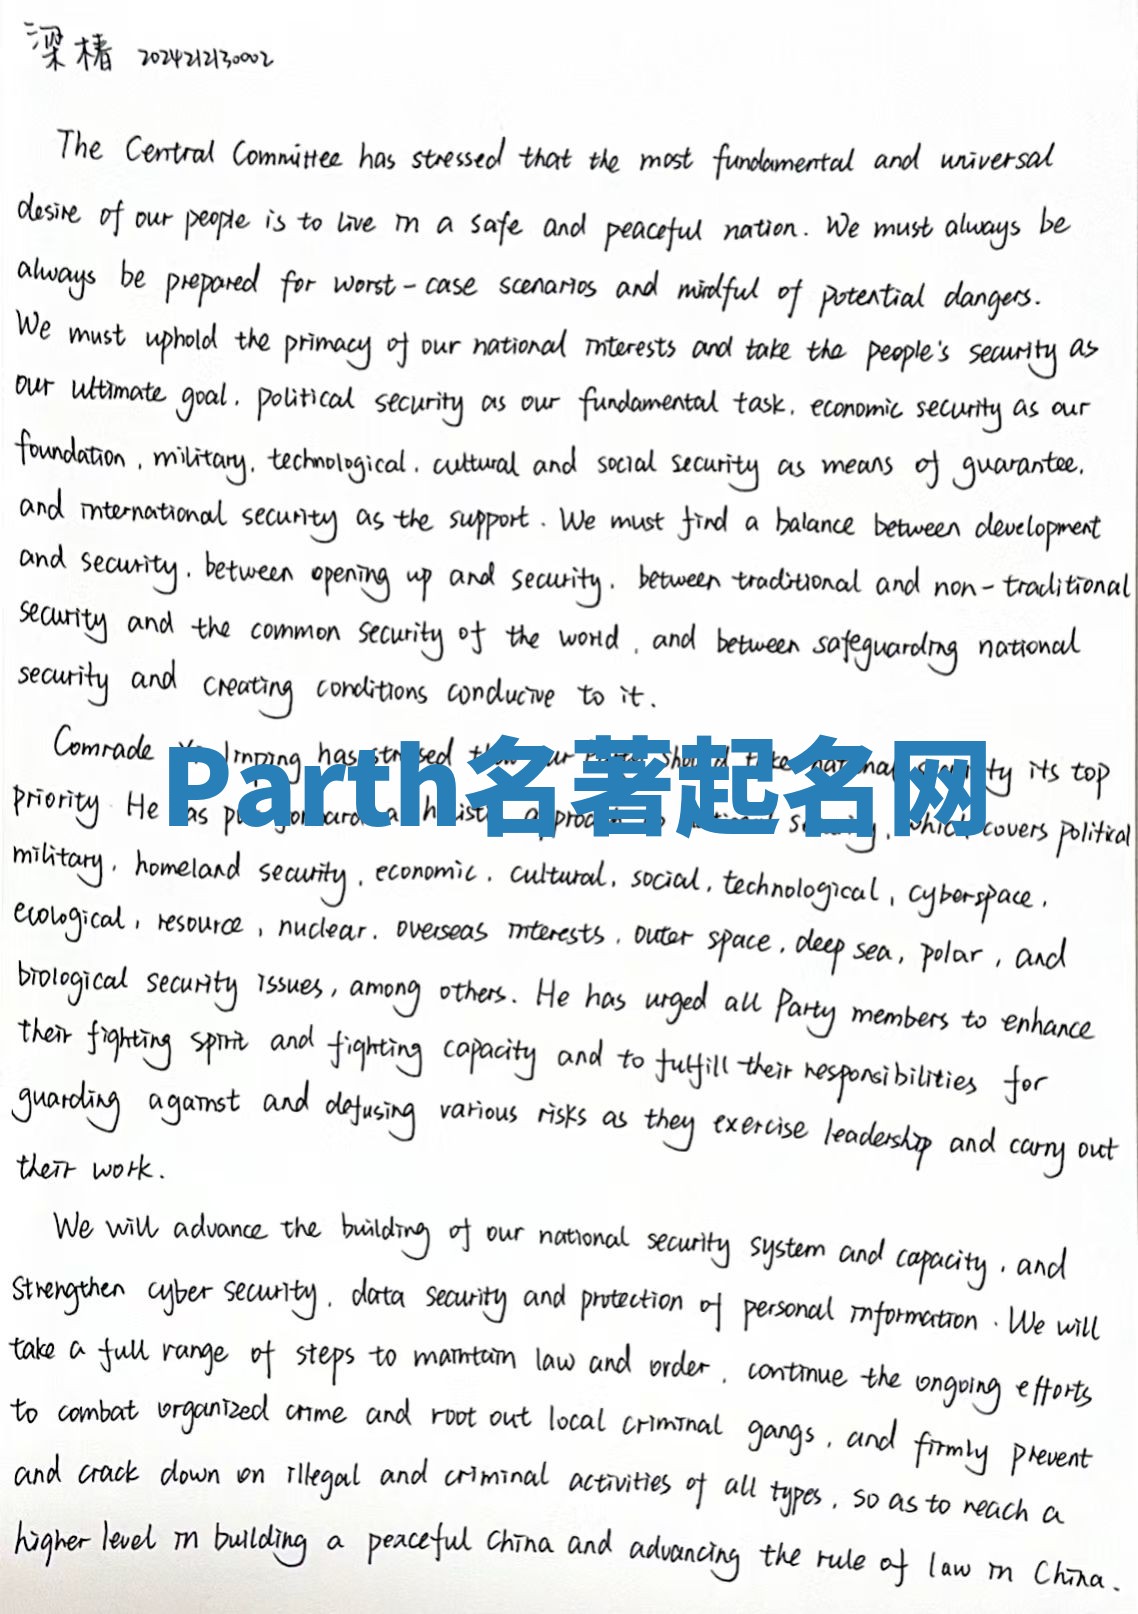 梁椿 2024212130002
The Central Committee has stressed that the most fundamental and universal
desire of our people is to live in a safe and peaceful nation. We must always be
always be prepared for worst-case scenarios and mindful of potential dangers.
We must uphold the primacy of our national interests and take the people's security as
our ultimate goal, political security as our fundamental task, economic security as our
foundation, military, technological, cultural and social security as means of guarantee,
and international security as the support. We must find a balance between development
and security, between opening up and security, between traditional and non-traditional
security and the common security of the world, and between safeguarding national
security and creating conditions conducive to it.
Comrade Jinping has stressed our should take national security its top
Parth名著起名网
priority. He has which covers political
military, homeland security, economic, cultural, social, technological, cyberspace,
ecological, resource, nuclear, overseas interests, outer space, deep sea, polar, and
biological security issues, among others. He has urged all Party members to enhance
their fighting spirit and fighting capacity and to fulfill their responsibilities for
guarding against and defusing various risks as they exercise leadership and carry out
their work.
We will advance the building of our national security system and capacity, and
strengthen cyber security, data security and protection of personal information. We will
take a full range of steps to maintain law and order, continue the ongoing efforts
to combat organized crime and root out local criminal gangs, and firmly prevent
and crack down on illegal and criminal activities of all types, so as to reach a
higher level in building a peaceful China and advancing the rule of law in China.